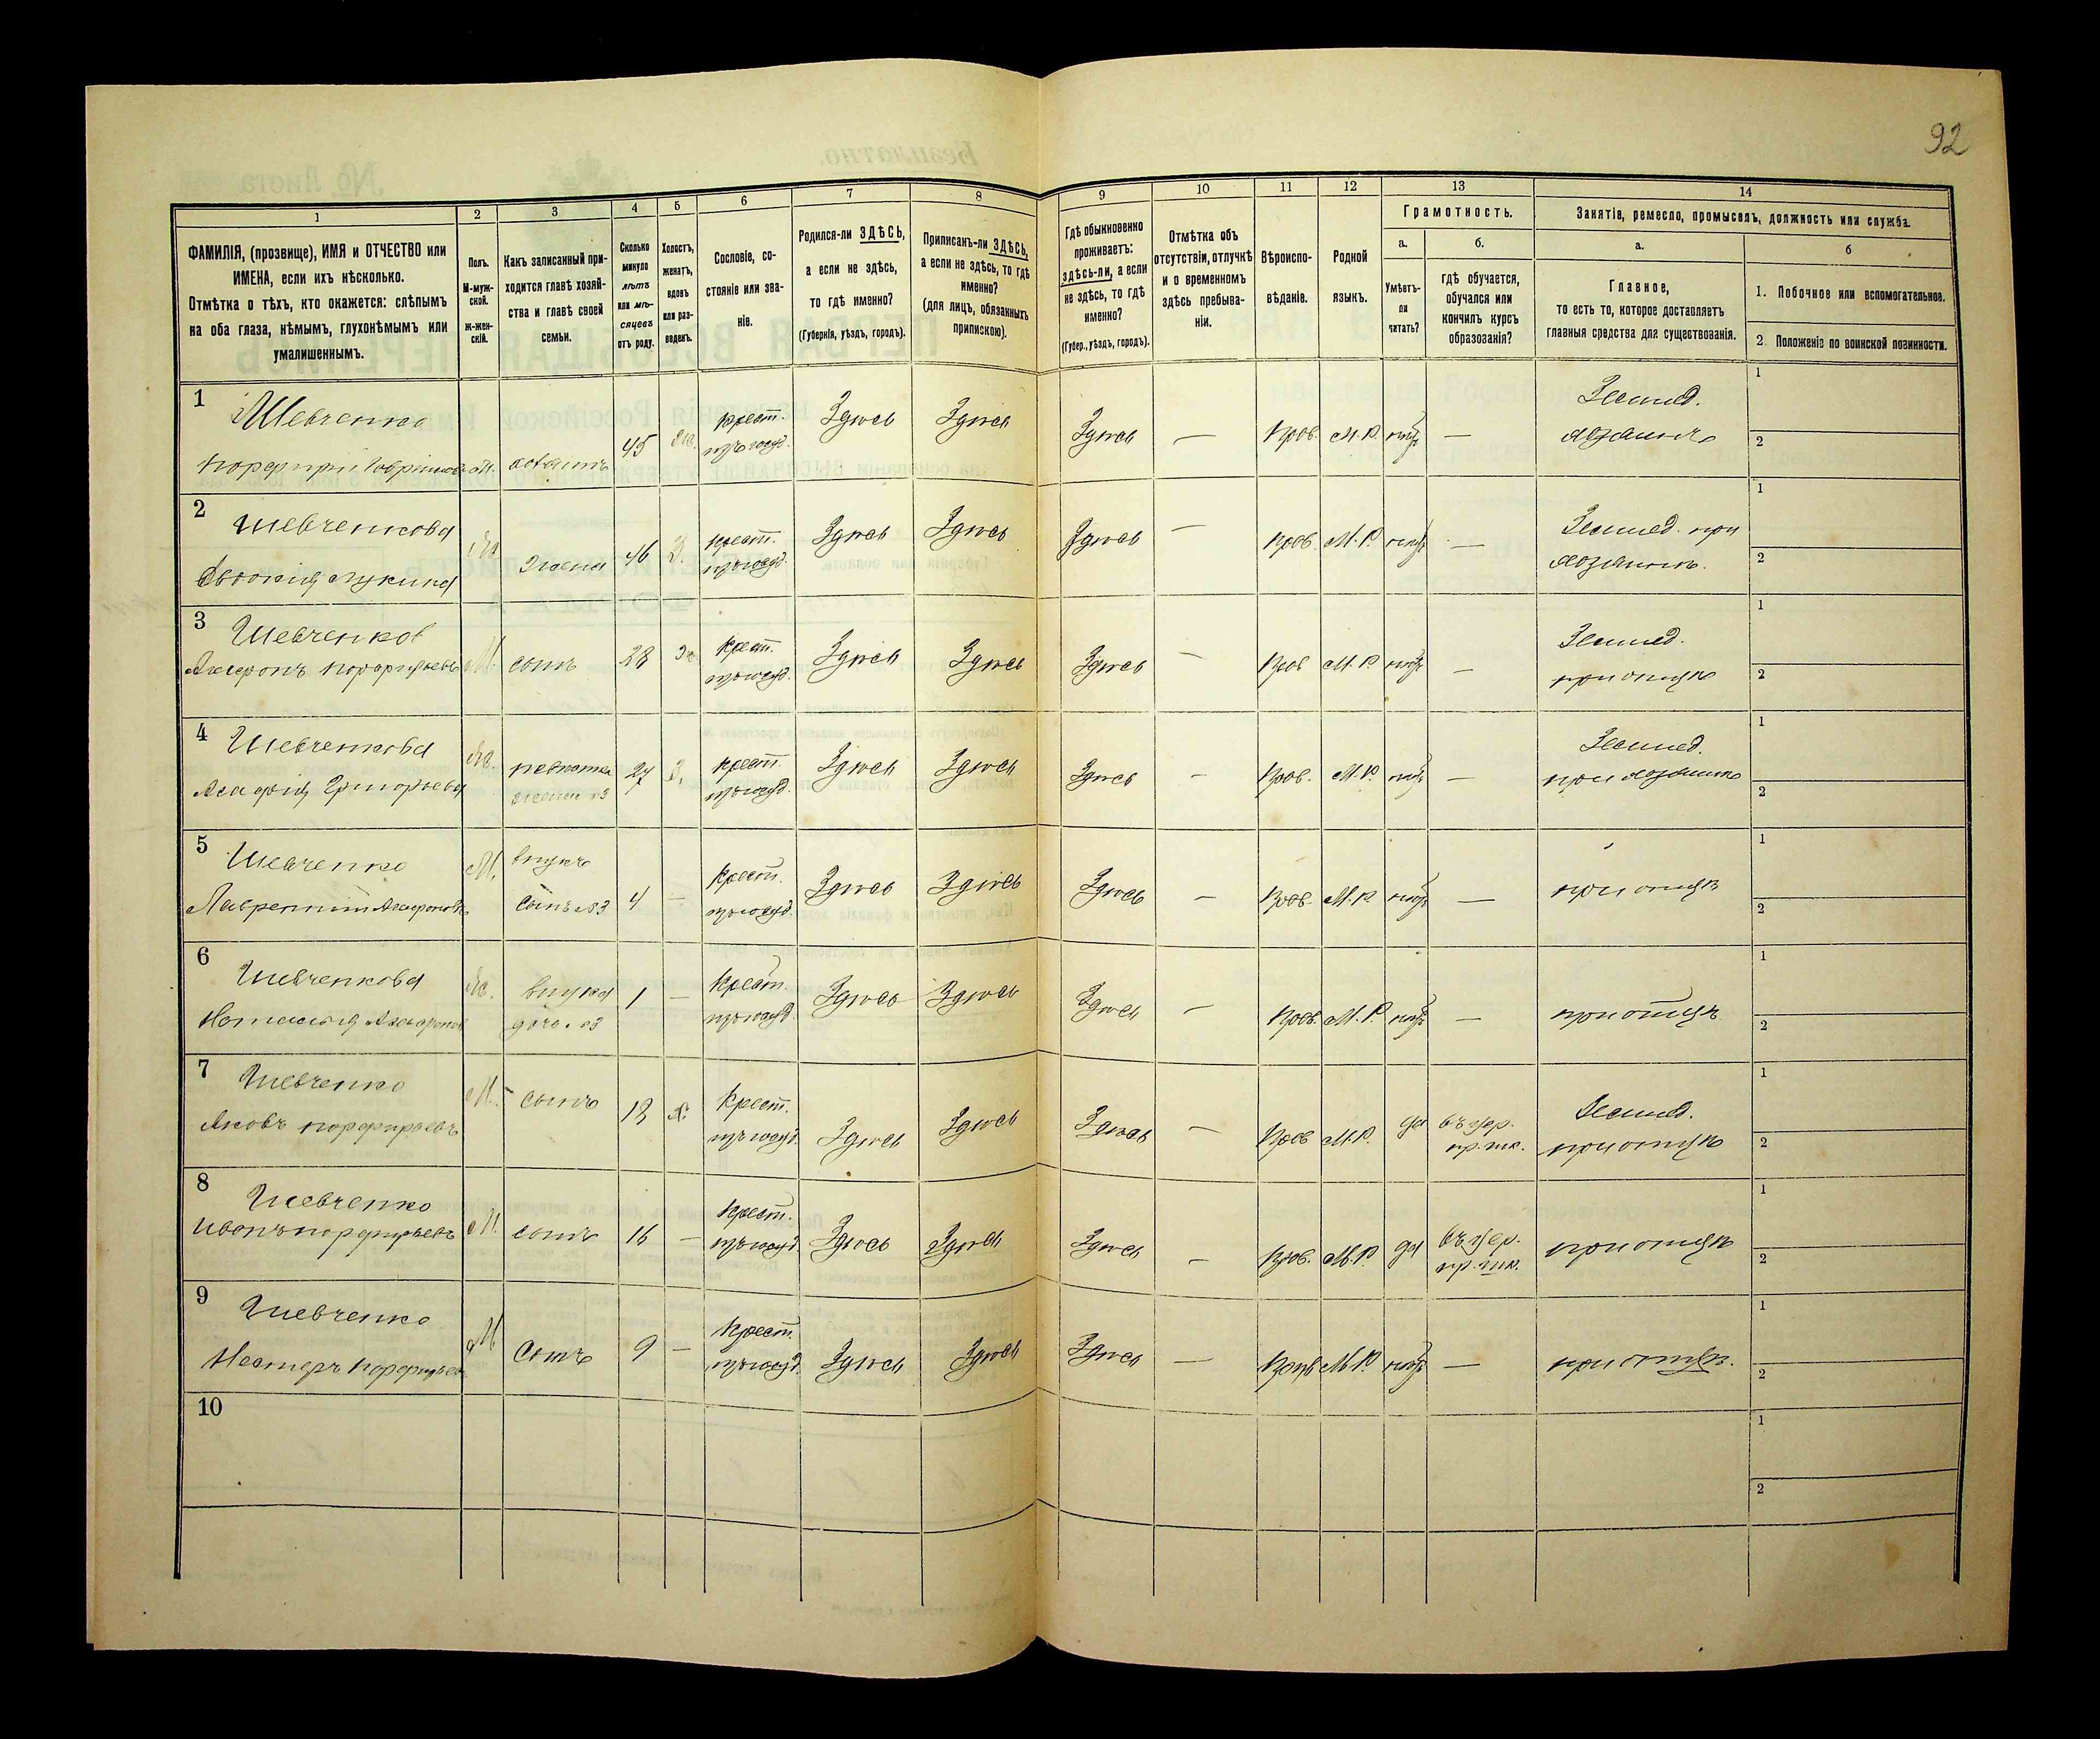 92
1
2
3
4
5
6
7
8
9
10
11
12
13
14
ФАМИЛІЯ, (прозвище), ИМЯ и ОТЧЕСТВО или
ИМЕНА, если ихъ нѣсколько.
Отмѣтка о тѣхъ, кто окажется: слѣпымъ
на оба глаза, нѣмымъ, глухонѣмымъ или
умалишеннымъ.
Полъ.
М-муж-
ской.
ж-жен-
скій.
Какъ записанный при-
ходится главѣ хозяй-
ства и главѣ своей
семьи.
Сколько
минуло
лѣтъ
или мѣ-
сяцевъ
отъ роду.
Холостъ,
женатъ,
вдовъ
или раз-
веденъ.
Сословіе, со-
стояніе или зва-
ніе.
Родился-ли ЗДѢСЬ,
а если не здѣсь,
то гдѣ именно?
(Губернія, уѣздъ, городъ).
Приписанъ-ли ЗДѢСЬ,
а если не здѣсь, то гдѣ
именно?
(для лицъ, обязанныхъ
припискою).
Гдѣ обыкновенно
проживаетъ:
здѣсь-ли, а если
не здѣсь, то гдѣ
именно?
(Губер., уѣздъ, городъ).
Отмѣтка объ
отсутствіи, отлучкѣ
и о временномъ
здѣсь пребыва-
ніи.
Вѣроиспо-
вѣданіе.
Родной
языкъ.
Грамотность.
а.
Умѣетъ-
ли
читать?
б.
гдѣ обучается,
обучался или
кончилъ курсъ
образованія?
Занятіе, ремесло, промыселъ, должность или служба.
а.
Главное,
то есть то, которое доставляетъ
главныя средства для существованія.
б
1. Побочное или вспомогательное.
2. Положеніе по воинской повинности.
1 Шевченко
Порфирій М. хозяинъ 45 ж. крест. изъ госуд. Здѣсь Здѣсь Здѣсь — Прав. М.Р. нѣтъ — Землед. хозяинъ 1 2
2 Шевченкова
Лукина Ж жена 46 З. крест. изъ госуд. Здѣсь Здѣсь Здѣсь — Прав. М.Р. нѣтъ — Землед. при хозяинѣ. 1 2
3 Шевченков
Агафонъ Порфирьевъ М. сынъ 28 крест. изъ госуд. Здѣсь Здѣсь Здѣсь — Прав М.Р. нѣтъ — Землед. при отцѣ 1 2
4 Шевченкова
Агафія Григорьева Ж. невѣстка жена №3 27 З. крест. изъ госуд. Здѣсь Здѣсь Здѣсь — Прав. М.Р. нѣтъ — Землед. при хозяинѣ 1 2
5 Шевченко
Лаврентій Агафоновъ М. внукъ сынъ №3 4 — крест. изъ госуд. Здѣсь Здѣсь Здѣсь — Прав. М.Р. нѣтъ — при отцѣ 1 2
6 Шевченкова
Ж. внука дочь №3 1 — крест. изъ госуд. Здѣсь Здѣсь Здѣсь — Прав. М.Р. нѣтъ — при отцѣ 1 2
7 Шевченко
Яковъ Порфирьевъ М. сынъ 18 х. крест. изъ госуд. Здѣсь Здѣсь Здѣсь — Прав М.Р. да въ цер. пр. шк. Землед. при отцѣ 1 2
8 Шевченко
Иванъ Порфирьевъ М. сынъ 16 — крест. изъ госуд. Здѣсь Здѣсь Здѣсь — Прав. М.Р. да въ цер. пр. шк. при отцѣ 1 2
9 Шевченко
Нестеръ Порфирьевъ М сынъ 9 — крест. изъ госуд. Здѣсь Здѣсь Здѣсь — Прав М.Р. нѣтъ — при отцѣ. 1 2
10 1 2